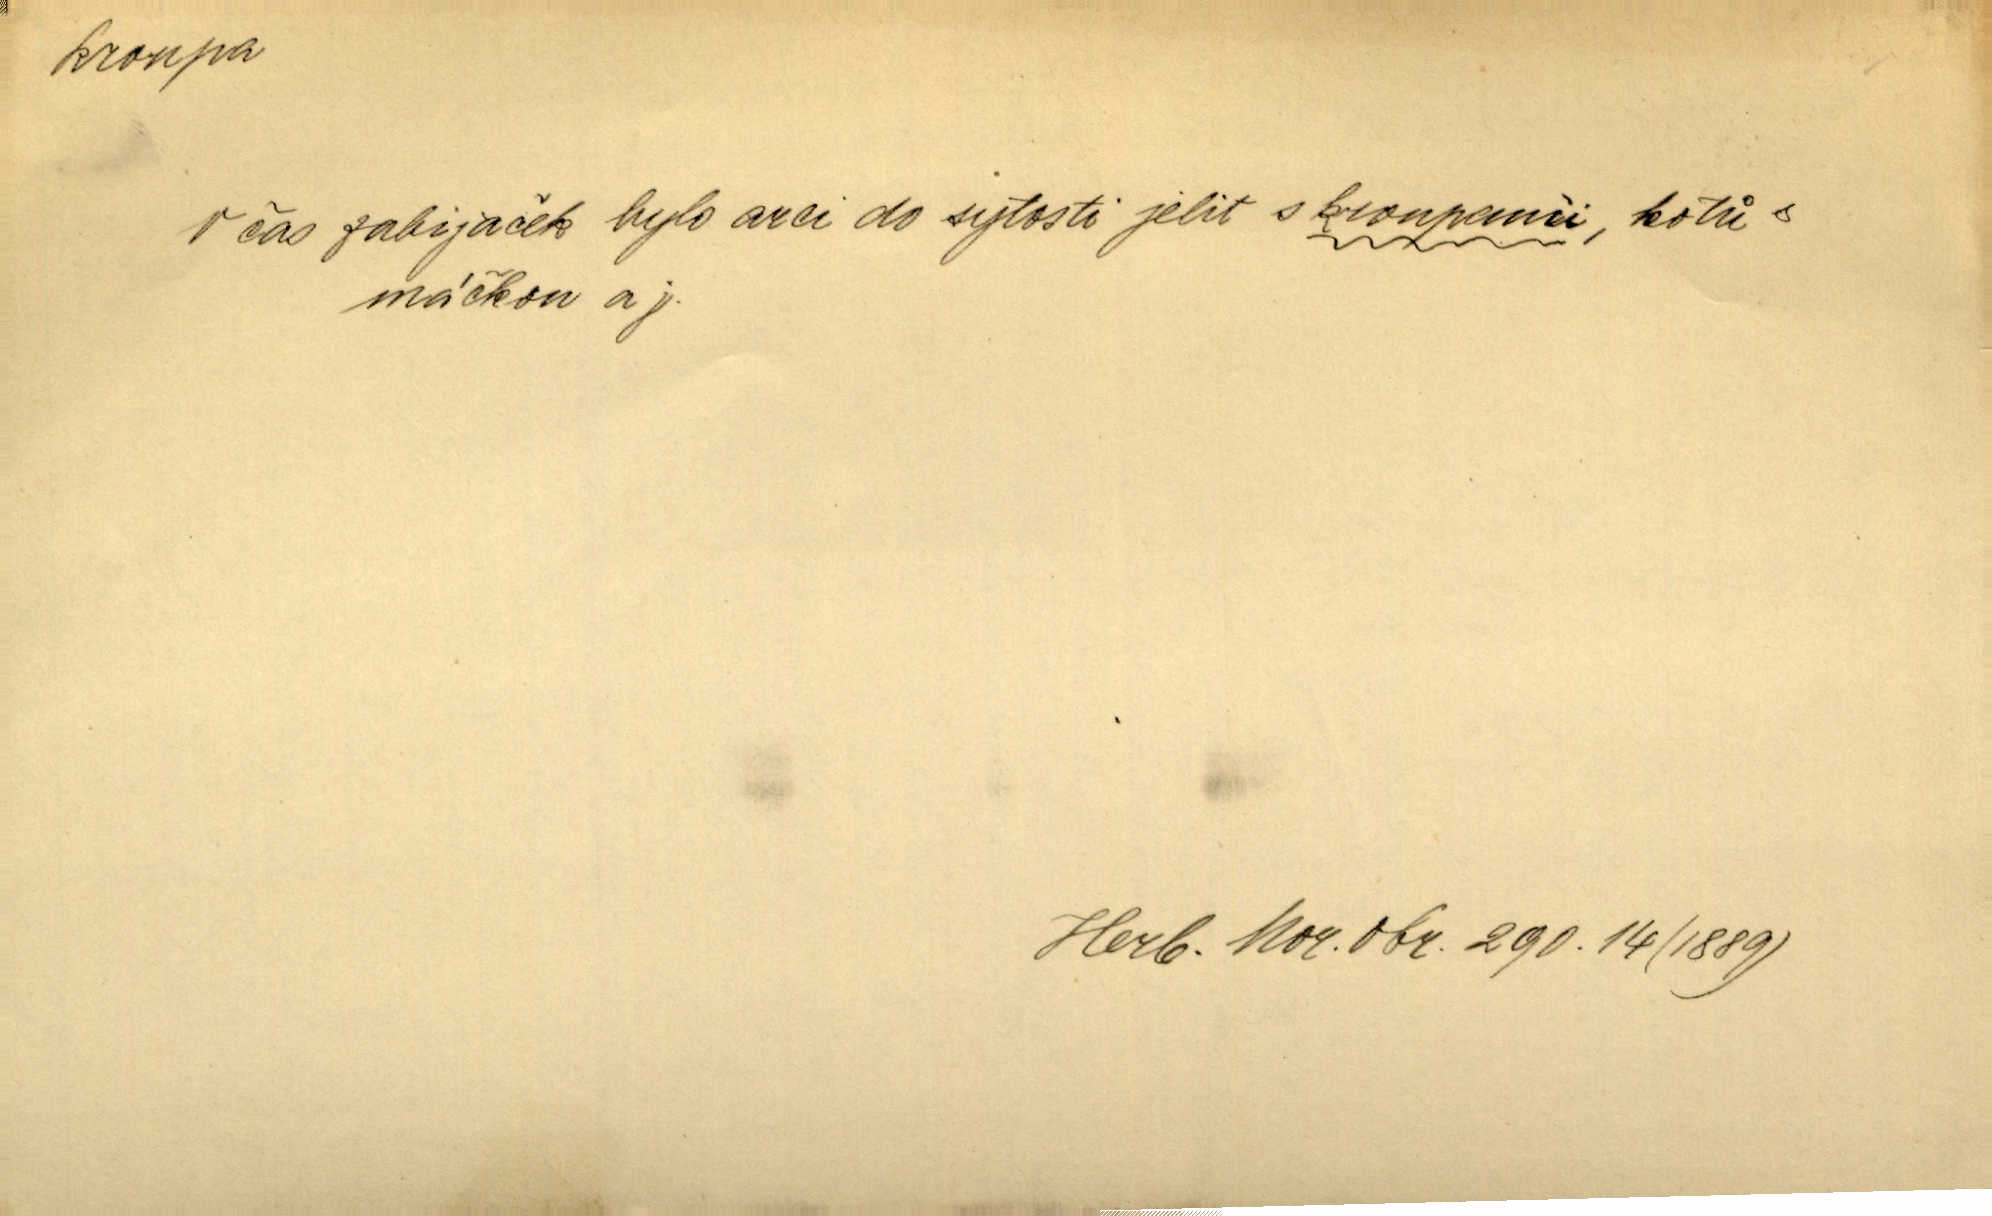 kroupa
V čas zabijaček bylo arci do sytosti jelit s kroupami, kotů s
máčkou a j.
Herb. Mor. Obr. 290. 14 (1889)